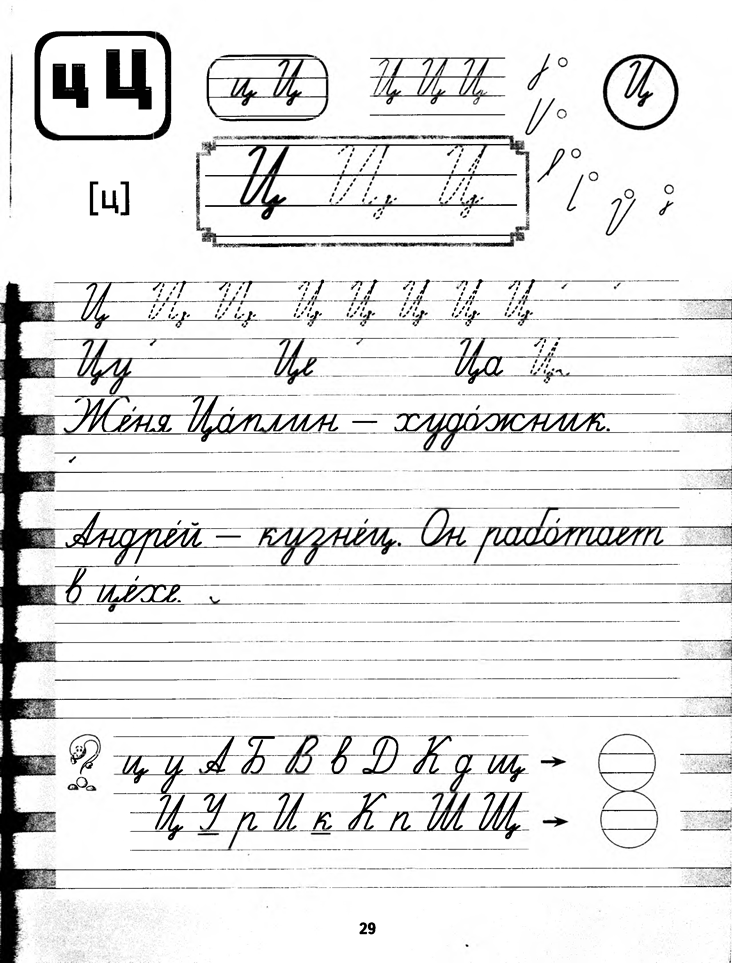 ц Ц
ц Ц
Ц Ц Ц
Ц
[ц]
Ц Ц Ц
Ц Ц Ц Ц Ц Ц Ц Ц
Цу Це Ца Ц
Же́ня Ца́плин — худо́жник.
Андре́й — кузне́ц. Он рабо́тает
в це́хе.
ц у А Б В в D К д щ →
Ц У р И к К п Ш Щ →
29